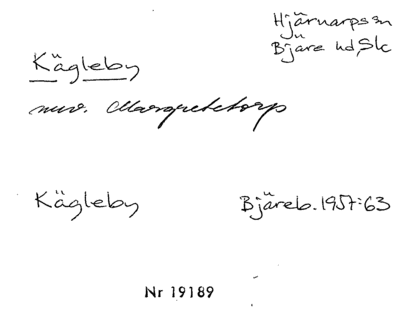 Hjärnarps sn
Bjäre hd, Skc
Kägleby
nuv. Margretetorp
Kägleby
Bjäreb. 1957:63
Nr 19189